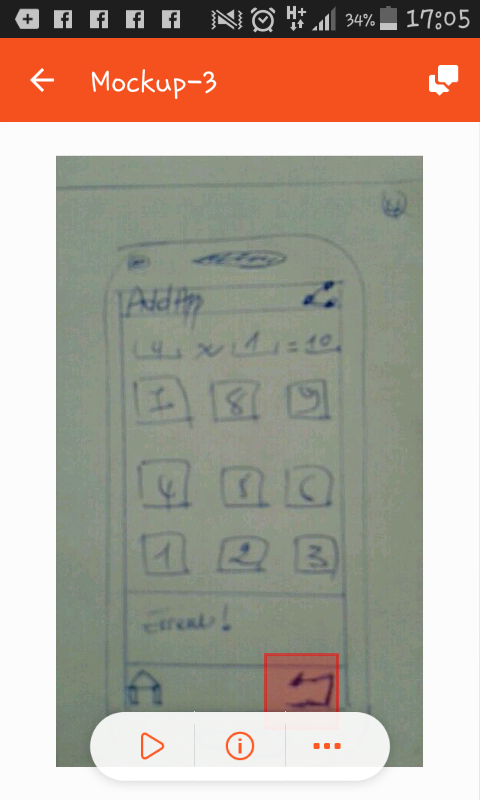 34% 17:05
Mockup-3
AddApp
4 x 1 = 10
7 8 9
4 5 6
1 2 3
Erreur!